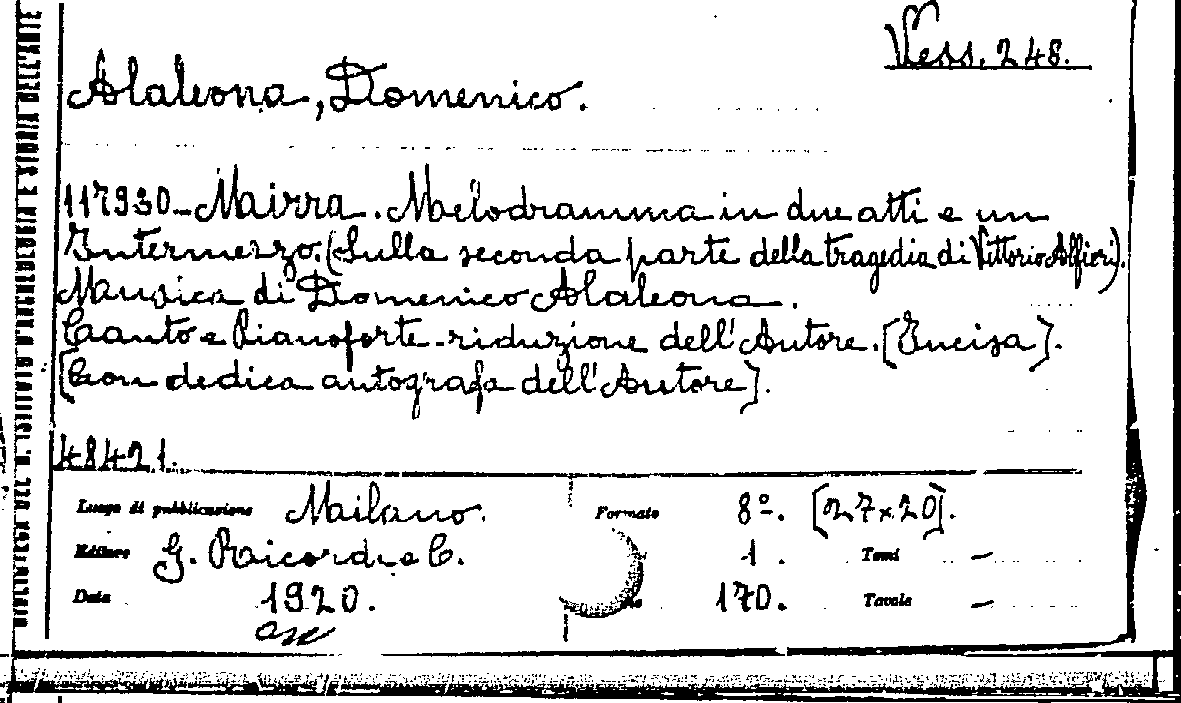 Vess. 248.
Alaleona, Domenico.
117930 - Mirra. Melodramma in due atti e un
Intermezzo. (Sulla seconda parte della tragedia di Vittorio Alfieri).
Musica di Domenico Alaleona.
Canto e Pianoforte - riduzione dell'Autore. [Incisa].
[Con dedica autografa dell'Autore].
48421.
Luogo di pubblicazione Milano. Formato 8º. [27×20].
Editore G. Ricordi e C. 1. Tomi —
Data 1920. 170. Tavole —